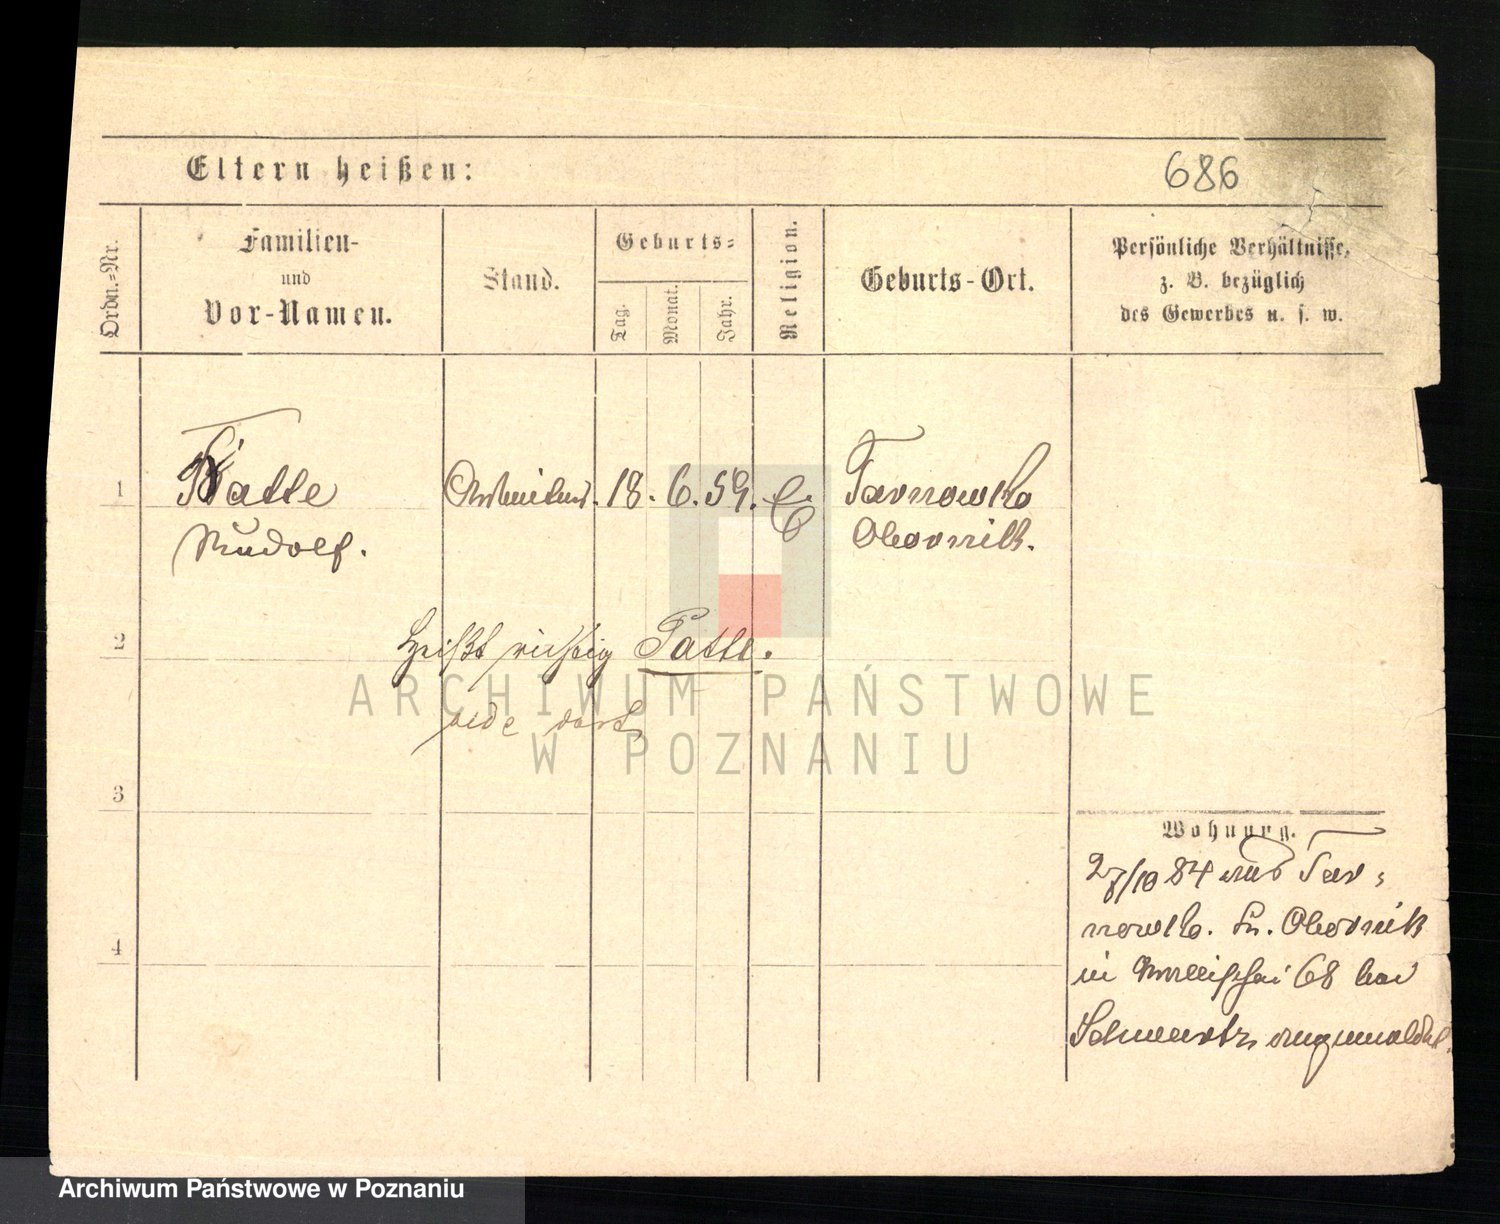 Eltern heißen:
686
Ordn.-Nr.
Familien-
und
Vor-Namen.
Stand.
Geburts-
Tag.
Monat.
Jahr.
Religion.
Geburts-Ort.
Persönliche Verhältnisse,
z. B. bezüglich
des Gewerbes u. s. w.
1
Tatte
Arbeiter. 18. 6. 59.
Tarnowko
Rudolf.
Obornik.
2
heißt richtig Patte.
ARCHIWUM PAŃSTWOWE
dort
W POZNANIU
3
Wohnung.
27/10 84 aus Tar-
nowko. Kr. Obornik
4
in 68 bei
angemeldet.
Archiwum Państwowe w Poznaniu